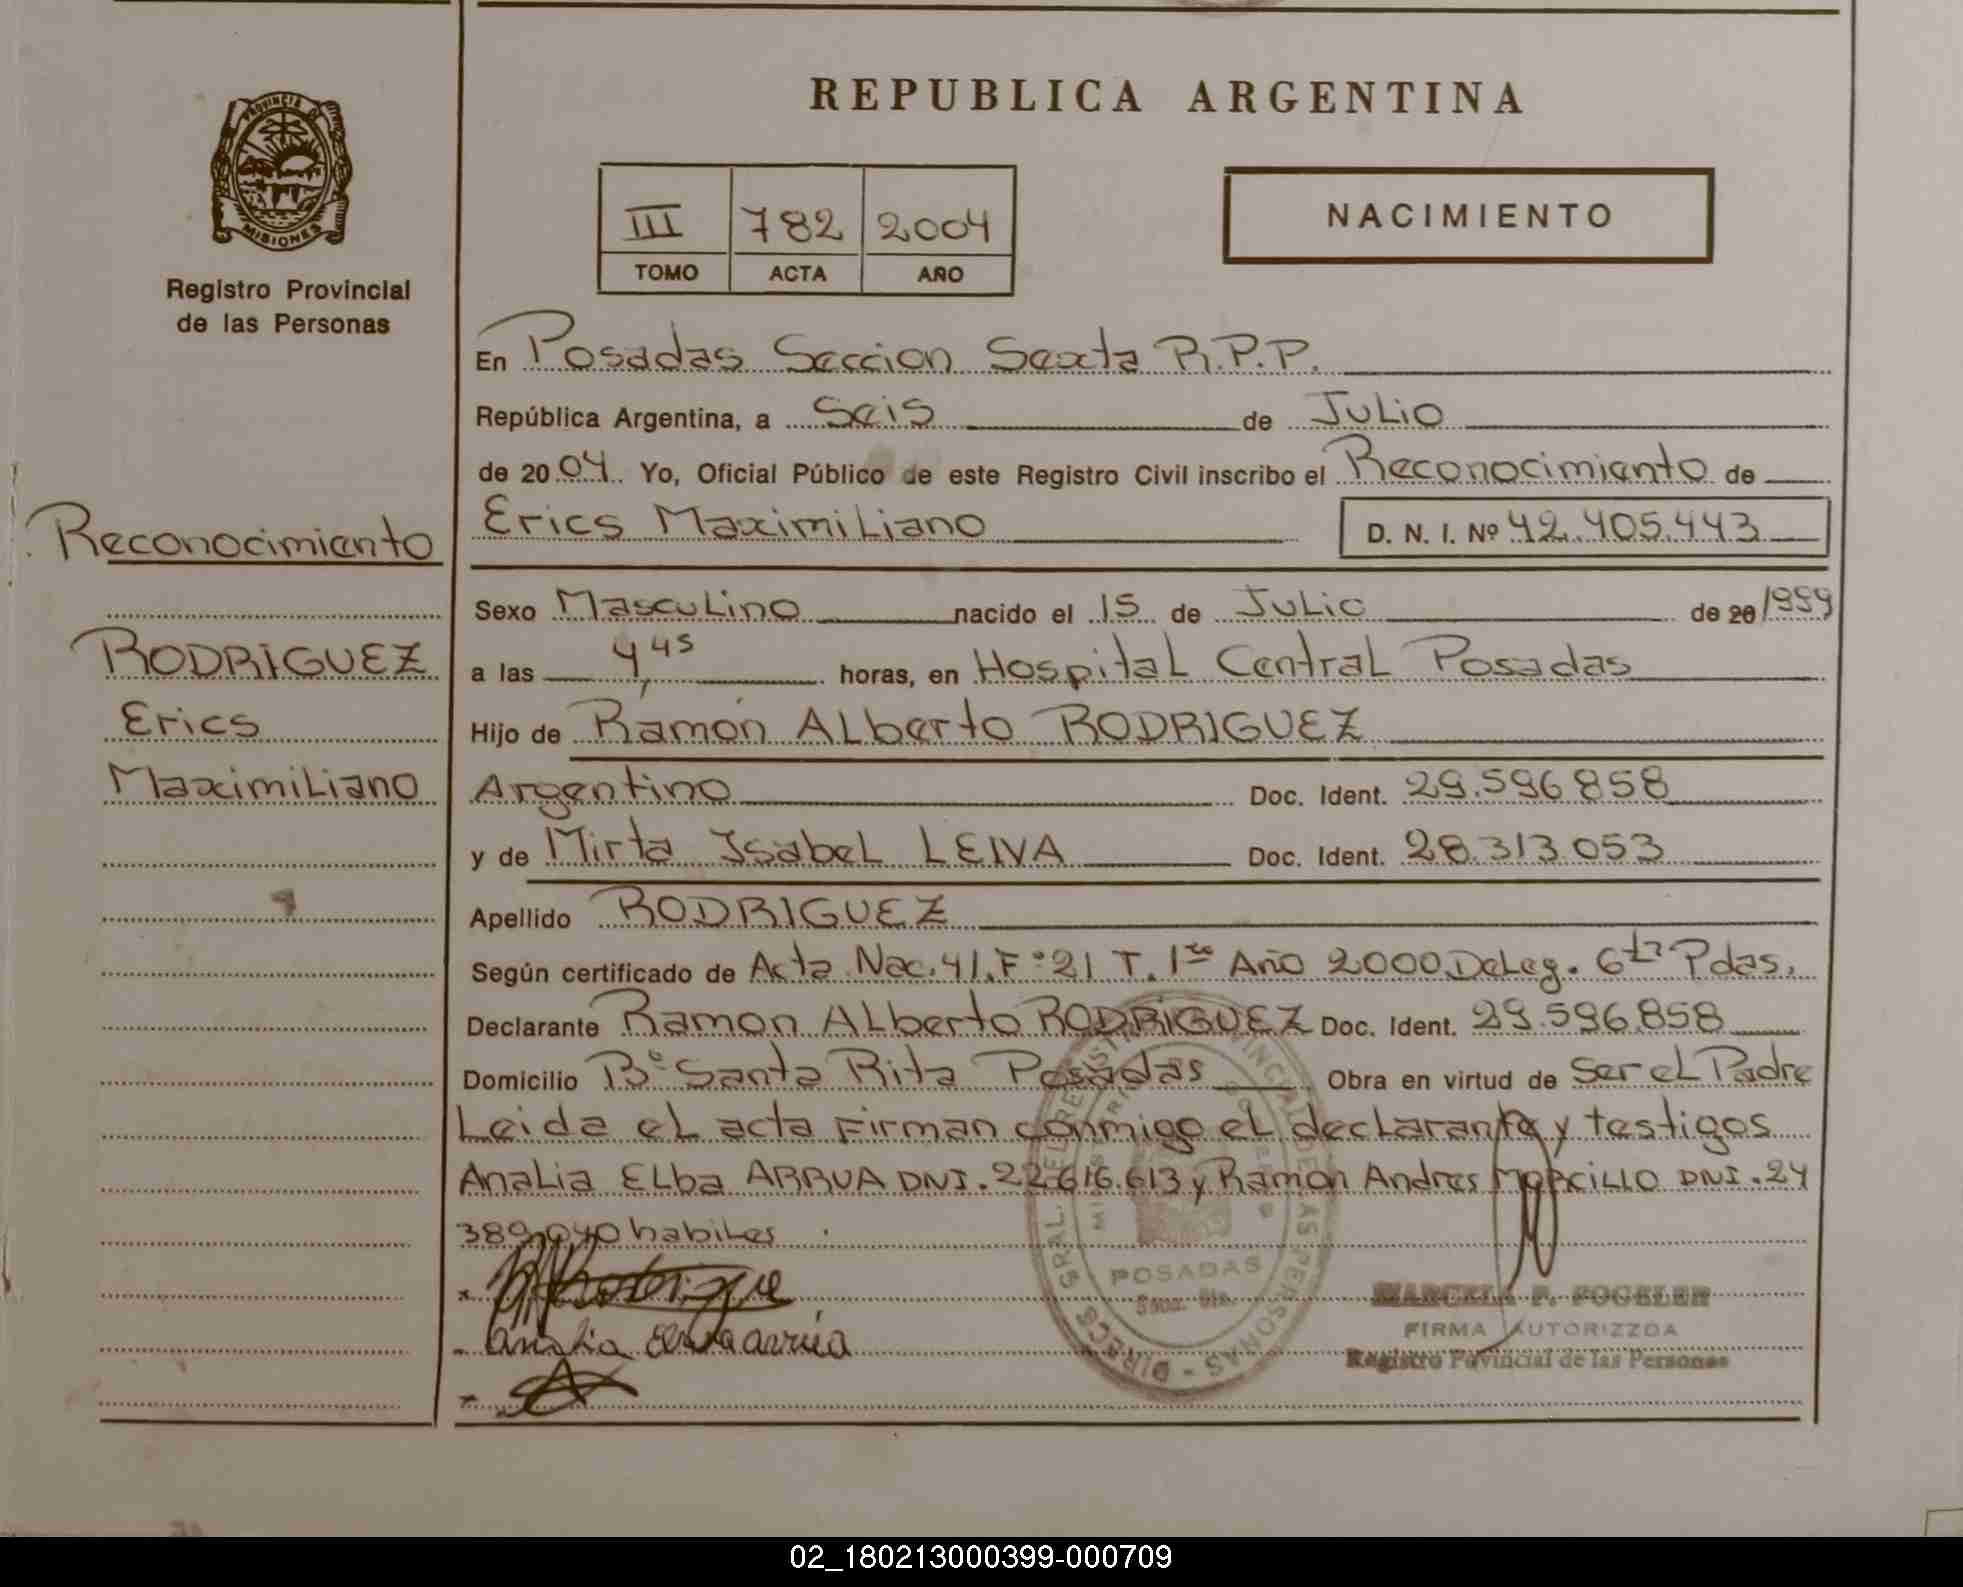 REPUBLICA ARGENTINA
PROVINCIA DE
MISIONES
Registro Provincial
de las Personas
III 782 2004
TOMO ACTA AÑO
NACIMIENTO
En Posadas Seccion Sexta R.P.P.
República Argentina, a Seis de Julio
de 2004 Yo, Oficial Público de este Registro Civil inscribo el Reconocimiento de
Erics Maximiliano D. N. I. Nº 42.405.443
Sexo Masculino nacido el 15 de Julio de 20 1999
a las 4,45 horas, en Hospital Central Posadas
Hijo de Ramón Alberto RODRIGUEZ
Argentino Doc. Ident. 29.596.858
y de Mirta Isabel LEIVA Doc. Ident. 28.313.053
Apellido RODRIGUEZ
Según certificado de Acta Nac. 41. Fº 21 T. 1ro Año 2000 Deleg. 6ta Pdas.
Declarante Ramon Alberto RODRIGUEZ Doc. Ident. 29.596.858
Domicilio Bº Santa Rita Posadas Obra en virtud de Ser el Padre
Leida el acta Firman conmigo el declarante y testigos
Analia Elba ARRUA DNI. 22.616.613 y Ramon Andres MORCILLO DNI. 24
389.040 habiles
Analia Elba Arrúa
Reconocimiento
RODRIGUEZ
Erics
Maximiliano
POSADAS
MARCELA F. FOGELER
FIRMA AUTORIZZDA
Registro Povincial de las Personas
02_180213000399-000709